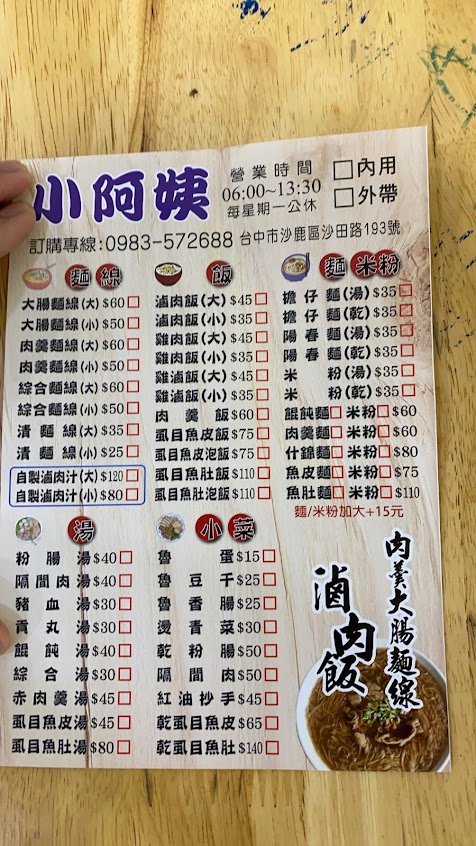 小阿姨
營業時間
06:00~13:30
每星期一公休
□內用
□外帶
訂購專線:0983-572688 台中市沙鹿區沙田路193號
麵線
大腸麵線(大)$60□
大腸麵線(小)$50□
肉羹麵線(大)$60□
肉羹麵線(小)$50□
綜合麵線(大)$60□
綜合麵線(小)$50□
清麵線(大)$35□
清麵線(小)$25□
自製滷肉汁(大)$120□
自製滷肉汁(小)$80□
飯
滷肉飯(大)$45□
滷肉飯(小)$35□
雞肉飯(大)$45□
雞肉飯(小)$35□
雞滷飯(大)$45□
雞滷飯(小)$35□
肉羹飯$60□
虱目魚皮飯$75□
虱目魚皮泡飯$75□
虱目魚肚飯$110□
虱目魚肚泡飯$110□
麵米粉
擔仔麵(湯)$35□
擔仔麵(乾)$35□
陽春麵(湯)$35□
陽春麵(乾)$35□
米粉(湯)$35□
米粉(乾)$35□
餛飩麵□米粉□$60
肉羹麵□米粉□$60
什錦麵□米粉□$80
魚皮麵□米粉□$75
魚肚麵□米粉□$110
麵/米粉加大+15元
湯
粉腸湯$40□
隔間肉湯$40□
豬血湯$30□
貢丸湯$30□
餛飩湯$40□
綜合湯$30□
赤肉羹湯$45□
虱目魚皮湯$45□
虱目魚肚湯$80□
小菜
魯蛋$15□
魯豆干$25□
魯香腸$25□
燙青菜$30□
乾粉腸$50□
隔間肉$50□
紅油抄手$45□
乾虱目魚皮$65□
乾虱目魚肚$140□
肉羹大腸麵線
滷肉飯